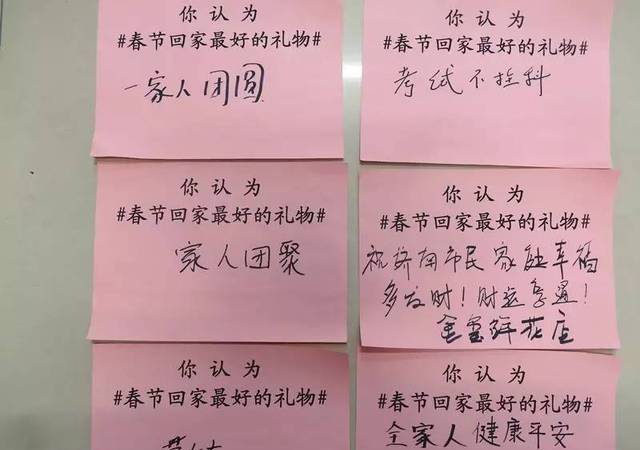 你认为
#春节回家最好的礼物#
一家人团圆
你认为
#春节回家最好的礼物#
考试不挂科
你认为
#春节回家最好的礼物#
家人团聚
你认为
#春节回家最好的礼物#
祝济南市民 家庭幸福
多发财！财运亨通！
鲜花店
你认为
#春节回家最好的礼物#
你认为
#春节回家最好的礼物#
全家人健康平安